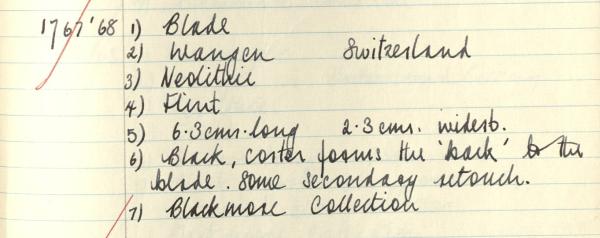 1767'68 1) Blade
2) Wangen Switzerland
3) Neolithic
4) Flint
5) 6.3cms. long 2.3cms. widest.
6) Black, cortex forms the 'back' to the
blade. Some secondary retouch.
7) Blackmore Collection